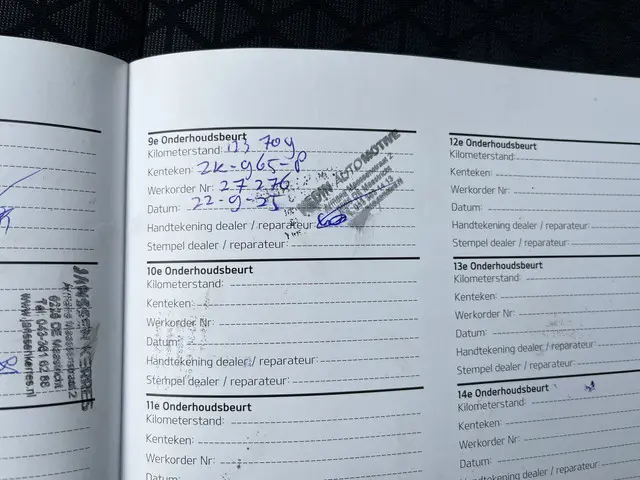 9e Onderhoudsbeurt
Kilometerstand: 113 709
Kenteken: 2K-965-P
Werkorder Nr: 27276
Datum: 22-9-25
Handtekening dealer / reparateur:
Stempel dealer / reparateur:
AUTOMOTIVE
10e Onderhoudsbeurt
Kilometerstand:
Kenteken:
Werkorder Nr:
Datum:
Handtekening dealer / reparateur:
Stempel dealer / reparateur:
11e Onderhoudsbeurt
Kilometerstand:
Kenteken:
Werkorder Nr:
Datum:
12e Onderhoudsbeurt
Kilometerstand:
Kenteken:
Werkorder Nr:
Datum:
Handtekening dealer / reparateur:
Stempel dealer / reparateur:
13e Onderhoudsbeurt
Kilometerstand:
Kenteken:
Werkorder Nr:
Datum:
Handtekening dealer / reparateur:
Stempel dealer / reparateur:
14e Onderhoudsbeurt
Kilometerstand:
Kenteken:
Werkorder Nr:
Datum:
Handtekening dealer / reparateur: